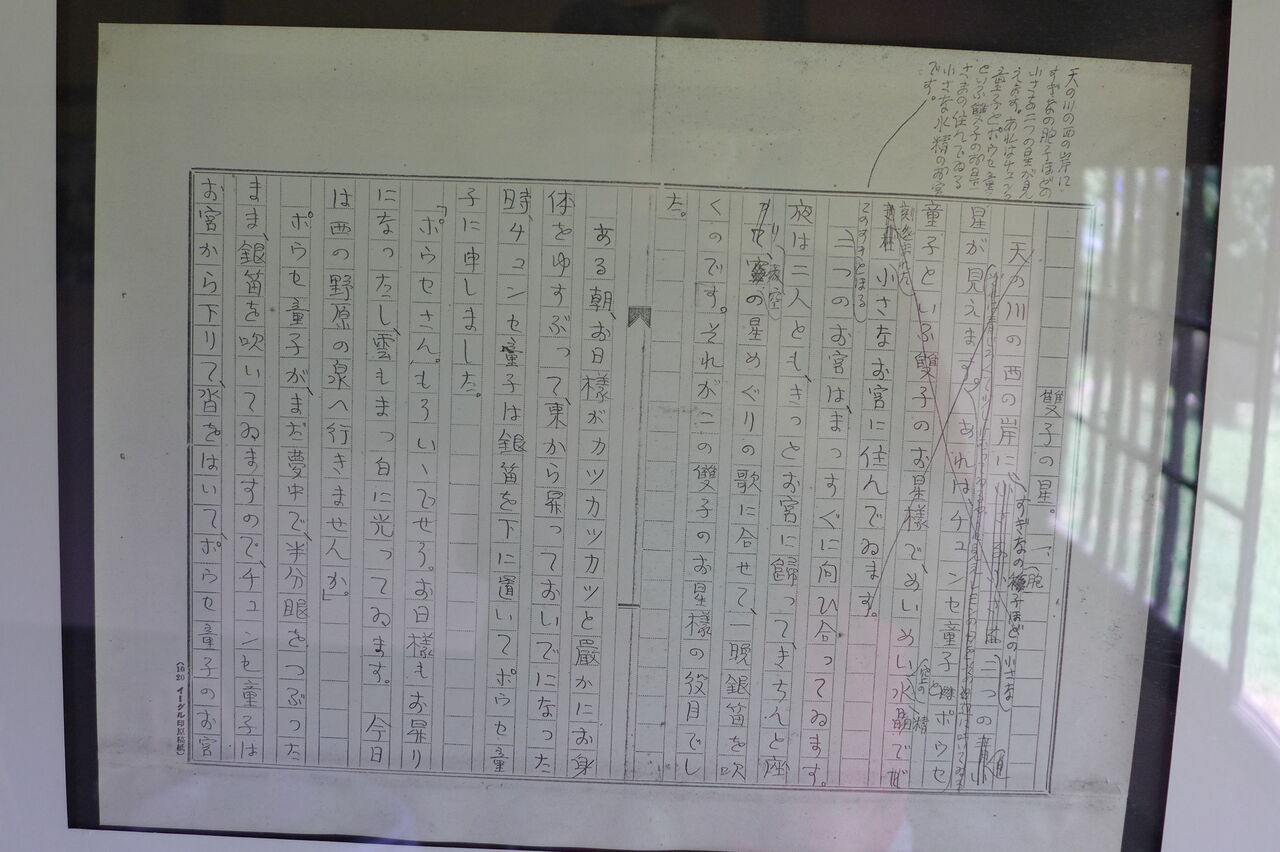 天の川の西の岸に
すぎなの胞子ほどの
小さな二つの星が見
えます。あれはチュンセ
童子とポウセ童
といふ雙子のお星
さまの住んでゐる
小さな水精のお宮
です。
雙子の星。 一、
胞
天の川の西の岸に
すぎなの種子ほどの小さな
二つの
星が見えます。あれは、チュンセ童子と ポウセ
童子といふ雙子のお星様で、めいめい水晶でで
空の
精
刻まれた
小さなお宮に住んでゐます。
このすきとほる
二つのお宮は、まっすぐに向ひ合ってゐます。
夜は二人とも、きっとお宮に歸って、きちんと座
り、
夜空
の星めぐりの歌に合せて、一晩銀笛を吹
くのです。それがこの雙子のお星様の役目でし
た。
ある朝、お日様がカツカツカツと嚴かにお身
体をゆすぶって、東から昇っておいでになった
時、チュンセ童子は銀笛を下に置いてポウセ童
子に申しました。
「ポウセさん。もういゝでせう。お日様もお昇り
になったし、雲もまっ白に光ってゐます。今日
は西の野原の泉へ行きませんか。」
ポウセ童子が、まだ夢中で、半分眼をつぶった
まま、銀笛を吹いてゐますので、チュンセ童子は
お宮から下りて、沓をはいて、ポウセ童子のお宮
(10 20 イーグル印原稿紙)